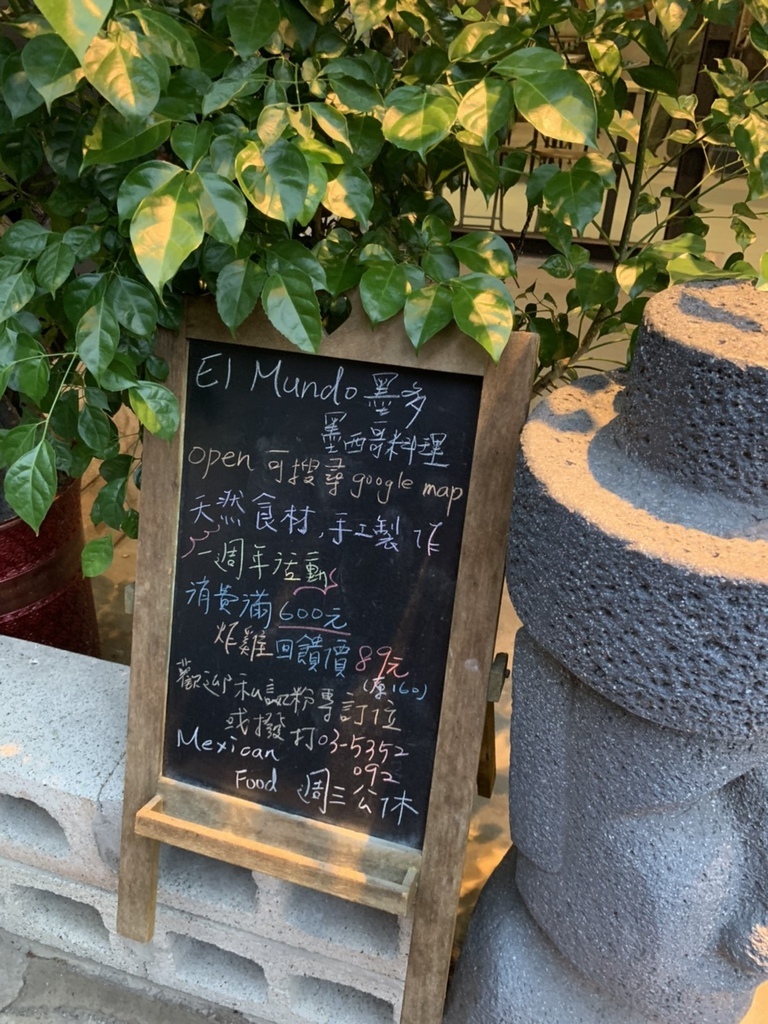 El Mundo 墨多
墨西哥料理
open 可搜尋 google map
天然食材,手工製作
一週年活動
消費滿 600元
炸雞回饋價 89元
(原160)
歡迎私訊粉專訂位
或撥打03-5352
092
Mexican
Food 週三公休